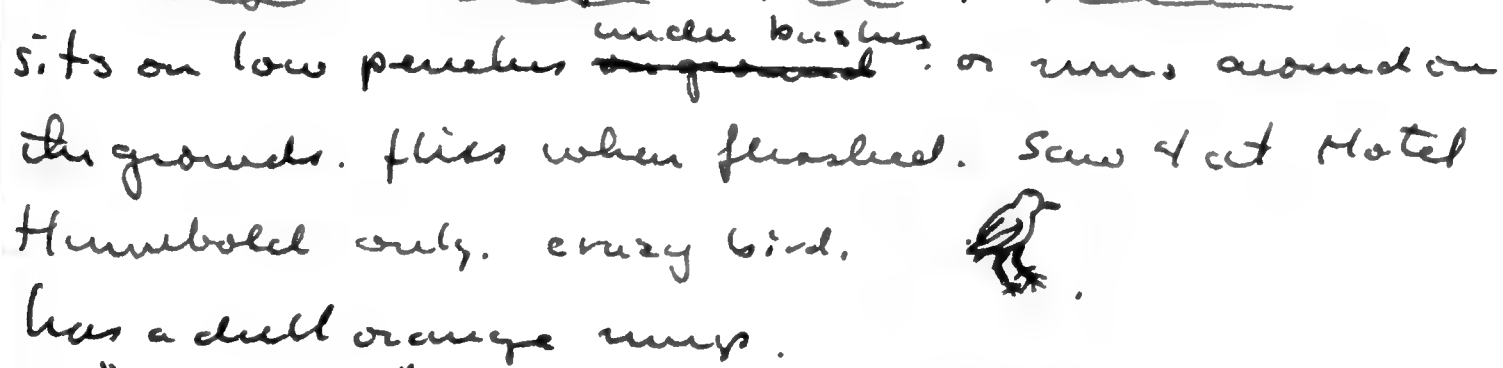 sits on low perches under bushes. or runs around on
the grounds. flies when flushed. Saw 4 at Hotel
Humbold only. crazy bird.
has a dull orange rump.